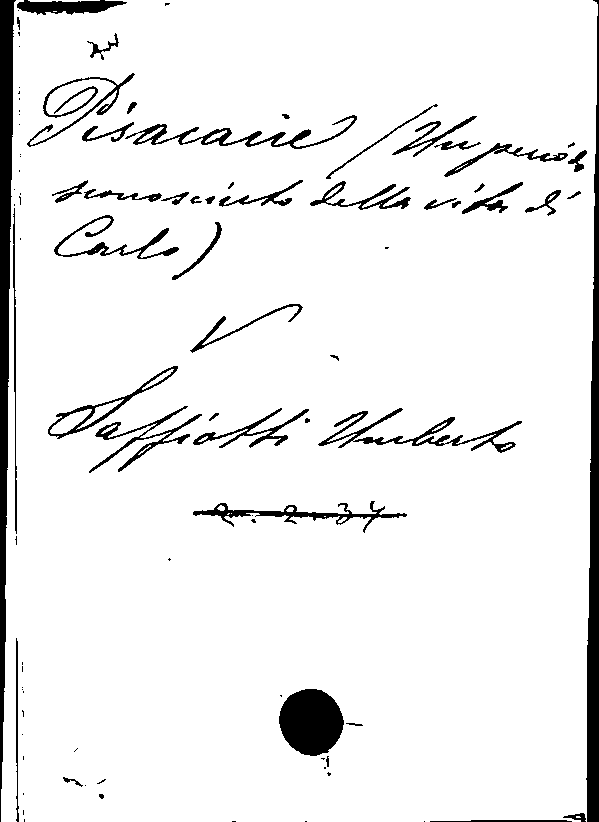 Pisacane (Un periodo
sconosciuto della vita di
Carlo)
V
Saffiotti Umberto
2. 2. 34